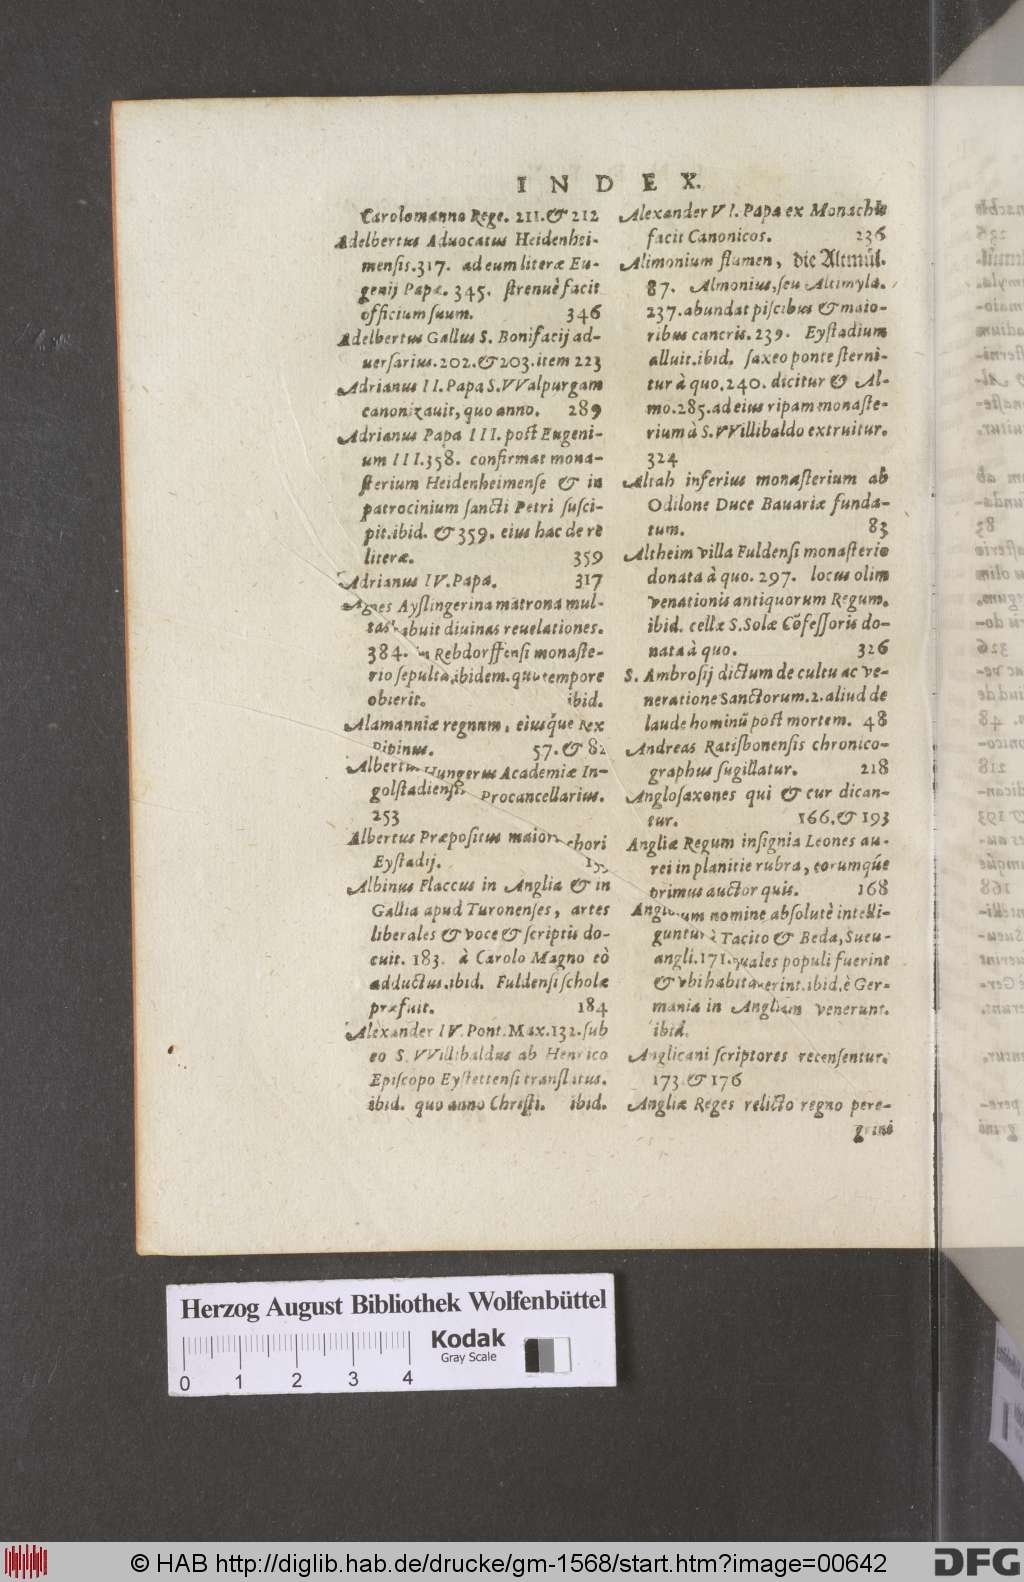 INDEX.
Carolomanno Rege. 211. & 212
Adelbertus Aduocatus Heidenhei-
mensis. 317. ad eum literæ Eu-
genij Papæ. 345. strenuè facit
officium suum. 346
Adelbertus Gallus S. Bonifacij ad-
uersarius. 202. & 203. item 223
Adrianus II. Papa S. VValpurgam
canonizauit, quo anno. 289
Adrianus Papa III. post Eugeni-
um III. 358. confirmat mona-
sterium Heidenheimense & in
patrocinium sancti Petri susci-
pit. ibid. & 359. eius hac de re
literæ. 359
Adrianus IV. Papa. 317
Agnes Ayslingerina matrona mul-
tas ibuit diuinas reuelationes.
384. in Rebdorffensi monaste-
rio sepulta, ibidem. quo tempore
obierit. ibid.
Alamanniæ regnum, eiusq́ue Rex
Pipinus. 57. & 82
Albertus Hungerus Academiæ In-
golstadiensis Procancellarius.
253
Albertus Præpositus maioris chori
Eystadij.
Albinus Flaccus in Anglia & in
Gallia apud Turonenses, artes
liberales & voce & scriptis do-
cuit. 183. à Carolo Magno eò
adductus. ibid. Fuldensi scholæ
præfuit. 184
Alexander IV. Pont. Max. 132. sub
eo S. VVillibaldus ab Henrico
Episcopo Eystettensi translatus.
ibid. quo anno Christi. ibid.
Alexander VI. Papa ex Monachis
facit Canonicos. 236
Alimonium flumen, die Altmül.
87. Almonius, seu Altimyla.
237. abundat piscibus & maio-
ribus cancris. 239. Eystadium
alluit. ibid. saxeo ponte sterni-
tur à quo. 240. dicitur & Al-
mo. 285. ad eius ripam monaste-
rium à S. VVillibaldo extruitur.
324
Altah inferius monasterium ab
Odilone Duce Bauariæ funda-
tum. 83
Altheim villa Fuldensi monasterio
donata à quo. 297. locus olim
venationis antiquorum Regum.
ibid. cellæ S. Solæ Cõfessoris do-
nata à quo. 326
S. Ambrosij dictum de cultu ac ve-
neratione Sanctorum. 2. aliud de
laude hominũ post mortem. 48
Andreas Ratisbonensis chronico-
graphus sugillatur. 218
Anglosaxones qui & cur dican-
tur. 166. & 193
Angliæ Regum insignia Leones au-
rei in planitie rubra, eorumq́ue
primus auctor quis. 168
Anglorum nomine absolutè intelli-
guntur à Tacito & Beda, Sueu-
angli. 171. quales populi fuerint
& vbi habitauerint. ibid. è Ger-
mania in Angliam venerunt.
ibid.
Anglicani scriptores recensentur.
173. & 176
Angliæ Reges relicto regno pere-
grinè
Herzog August Bibliothek Wolfenbüttel
Kodak
Gray Scale
0 1 2 3 4
© HAB http://diglib.hab.de/drucke/gm-1568/start.htm?image=00642
DFG